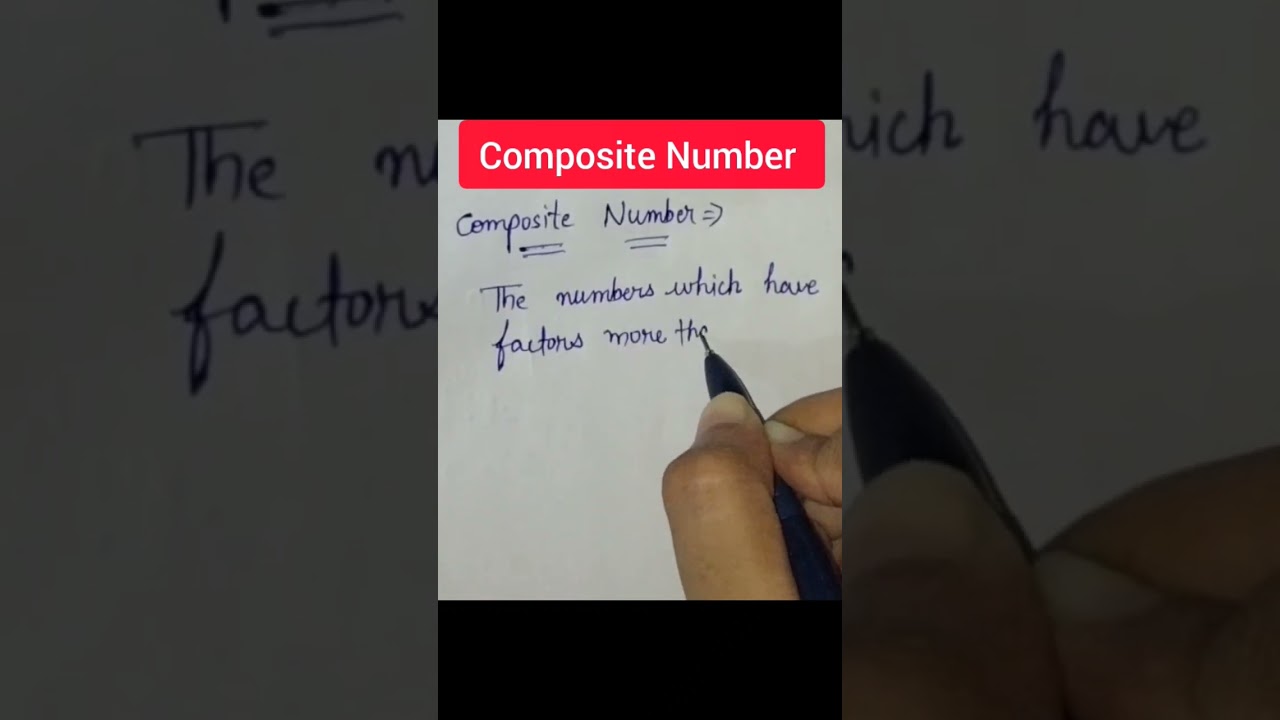 Composite Number
Composite Number ⇒
The numbers which have
factors more tha